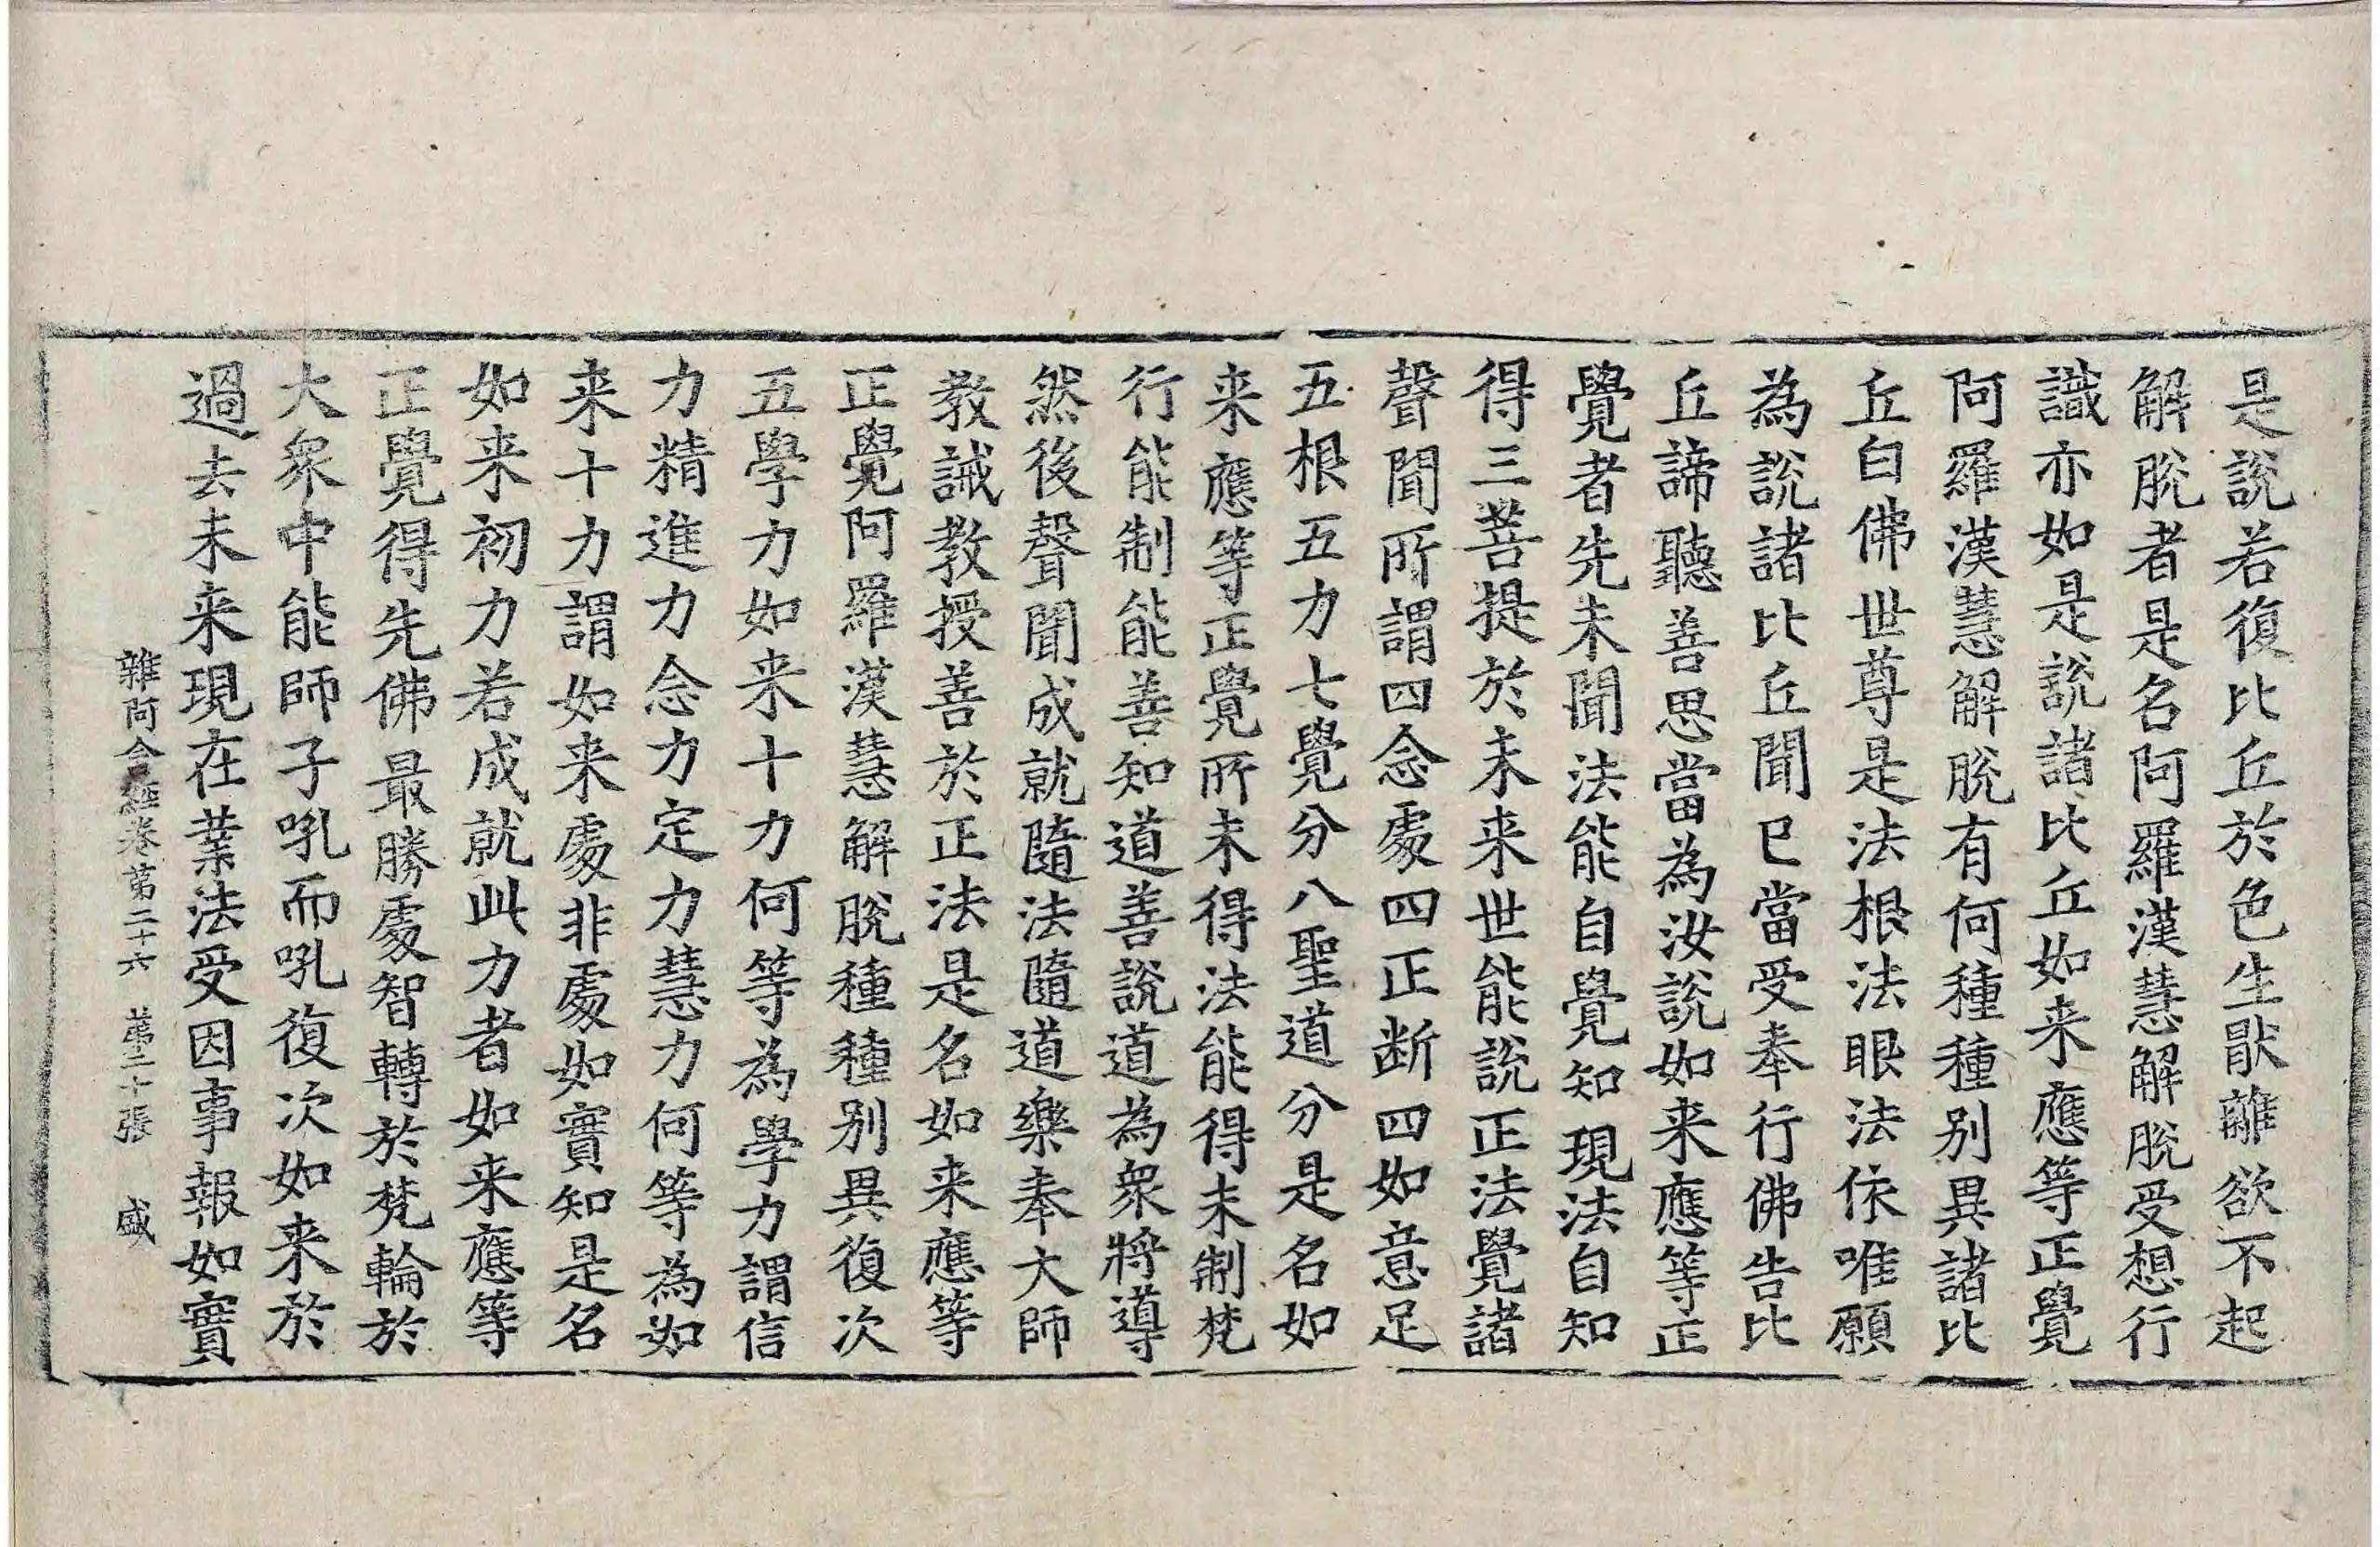 是說若復比丘於色生猒離欲不起
解脫者是名阿羅漢慧解脫受想行
識亦如是說諸比丘如来應等正覺
阿羅漢慧解脫有何種種别異諸比
丘白佛世尊是法根法眼法依唯願
為說諸比丘聞已當受奉行佛告比
丘諦聽善思當為汝說如来應等正
覺者先未聞法能自覺知現法自知
得三菩提於未来世能說正法覺諸
聲聞所謂四念處四正断四如意足
五根五力七覺分八聖道分是名如
来應等正覺所未得法能得未制梵
行能制能善知道善說道為衆將導
然後聲聞成就隨法隨道樂奉大師
教誡教授善於正法是名如来應等
正覺阿羅漢慧解脫種種别異復次
五學力如来十力何等為學力謂信
力精進力念力定力慧力何等為如
来十力謂如来處非處如實知是名
如来初力若成就此力者如来應等
正覺得先佛最勝處智轉於梵輪於
大衆中能師子吼而吼復次如来於
過去未来現在業法受因事報如實
雜阿含經卷第二十六 第二十張 盛